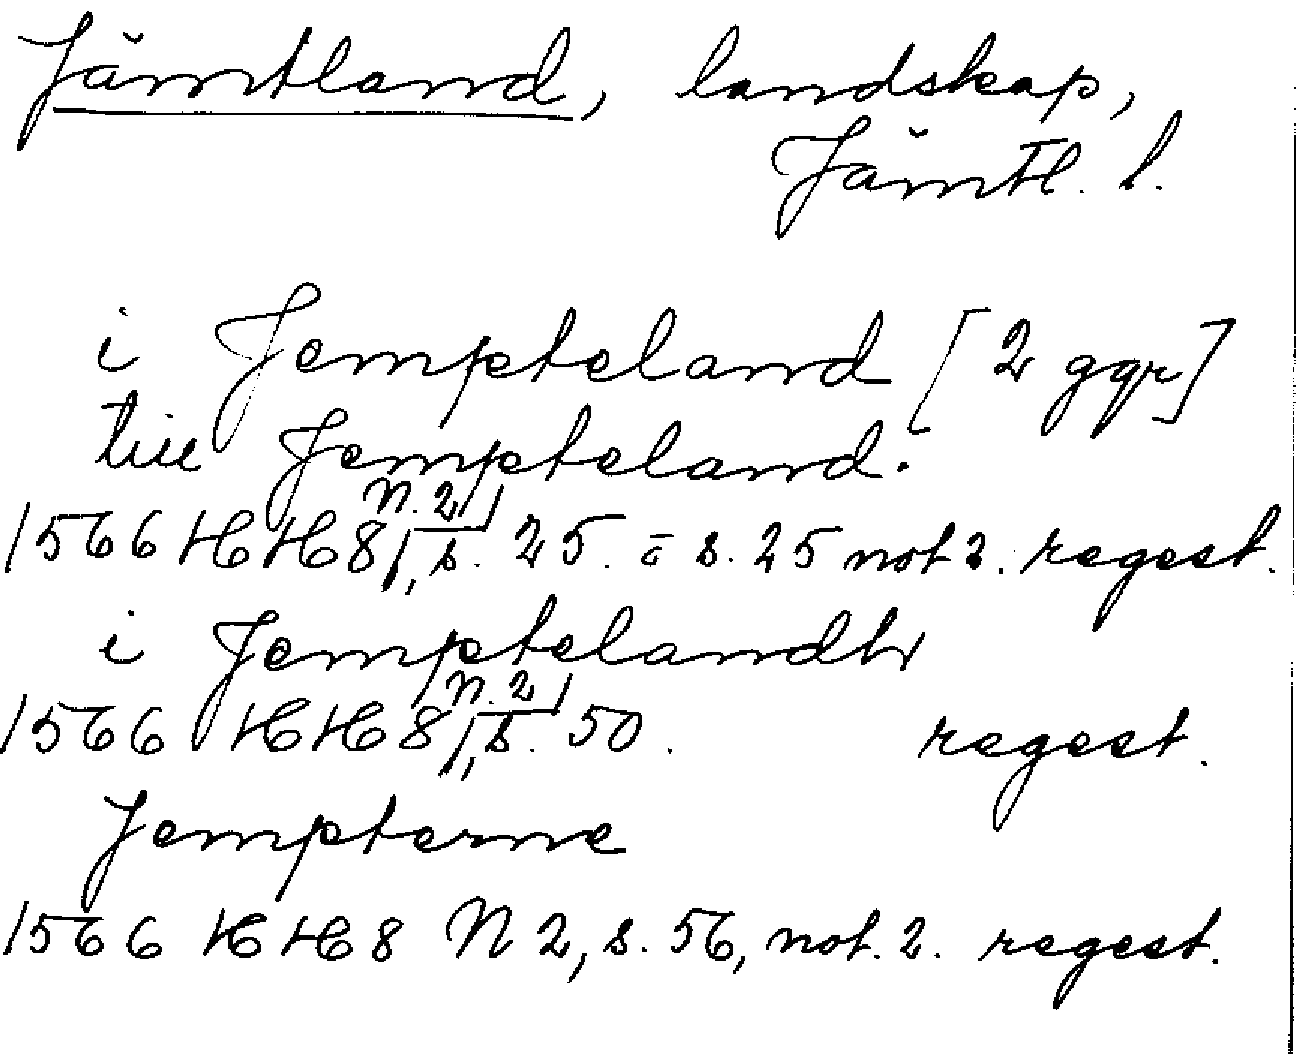 Jämtland, landskap,
Jämtl. l.
i Jempteland [2 ggr]
till Jempteland.
1566 HH 8, N. 2, s. 25. o s. 25 not 2. regest.
i Jemptelandh
1566 HH 8, N. 2, s. 50. regest.
Jempterne
1566 HH 8 N 2, s. 56, not. 2. regest.